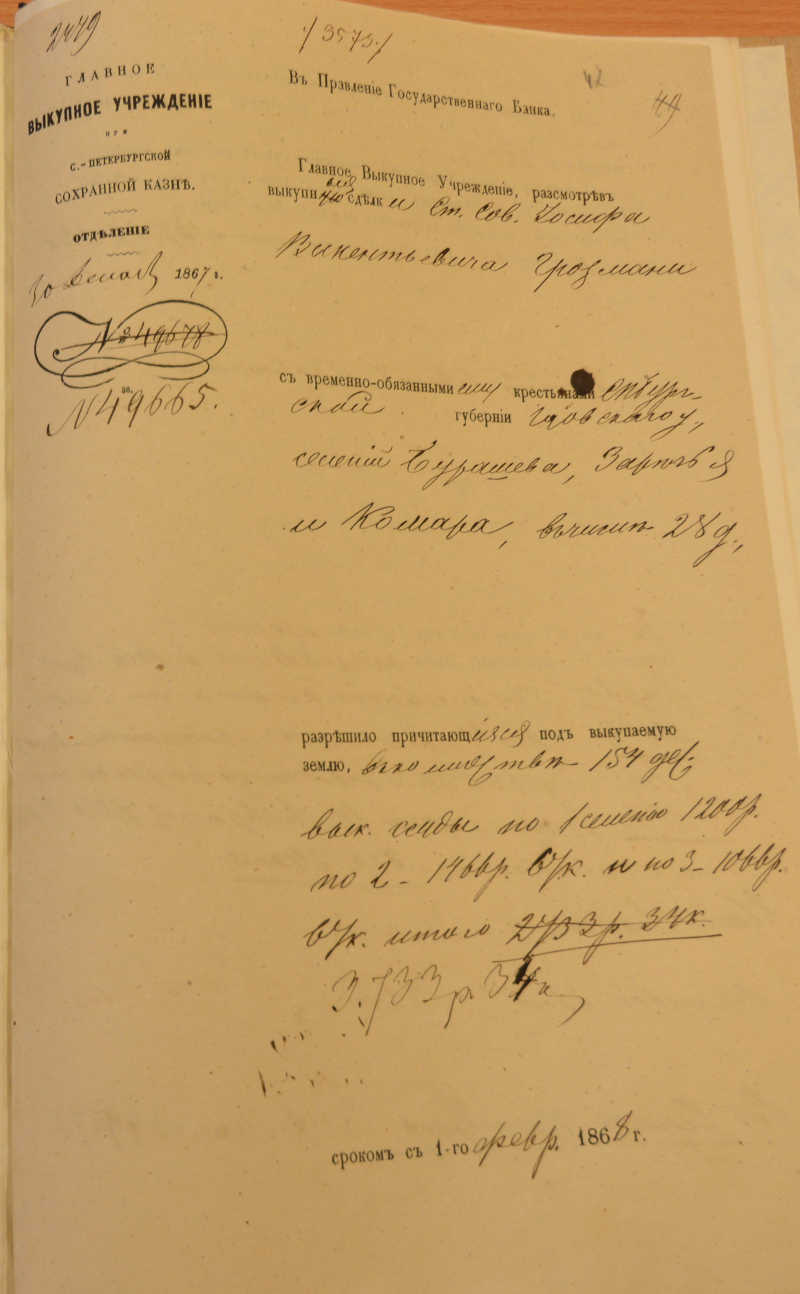 2479
/3573/
42
49
ГЛАВНОЕ
ВЫКУПНОЕ УЧРЕЖДЕНІЕ
ПРИ
С.-ПЕТЕРБУРГСКОЙ
СОХРАННОЙ КАЗНѢ.
ОТДѢЛЕНІЕ
1867 г.
№ 49678
№ 49665.
Въ Правленіе Государственнаго Банка.
Главное Выкупное Учрежденіе, разсмотрѣвъ
выкупн сдѣлк и Ст. Сов. Іосифа
Викентьевича Грозмани
съ временно-обязанными ему крестьянами Спбург-
ской губерніи Гдовскаго у,
селеній Бурашева, Заручья
и Комара, въ числѣ 28 д,
разрѣшило причитающіяся подъ выкупаемую
землю, въ количествѣ 154 дес.
вык. ссуды по 1 селенію 1200р.
по 2 - 1466р. 67к. и по 3 - 1066р.
67к. итого 2733р. 34к.
3.733 р 34к
срокомъ съ 1-го февр. 1868 г.